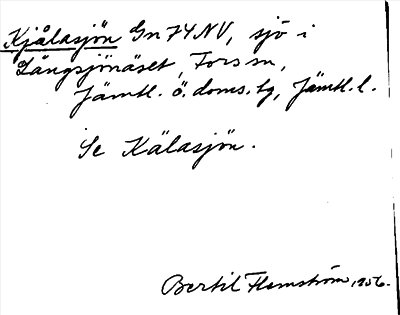 Kjålasjön Gn 74 NV, sjö i
Långsjönäset, Fors sn,
Jämtl. ö. doms. tg, Jämtl. l.
Se Kälasjön.
Bertil Flemström, 1956.